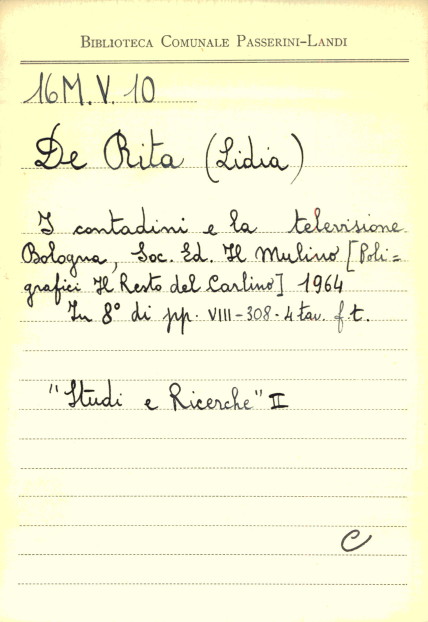 BIBLIOTECA COMUNALE PASSERINI-LANDI
16 M. V. 10
De Rita (Lidia)
I contadini e la televisione
Bologna, Soc. Ed. Il Mulino [Poli=
grafici Il Resto del Carlino] 1964
In 8° di pp. VIII-308-4 tav. f. t.
"Studi e Ricerche" II
C